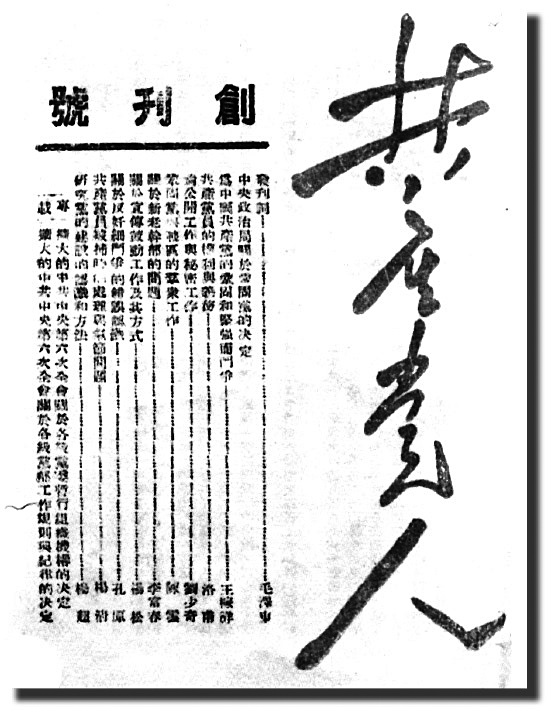 共产党人
創刊號
發刊詞 毛澤東
中央政治局關於鞏固黨的决定
爲中國共產黨的鞏固和堅强而鬥爭 王稼祥
共產黨員的權利與義務 洛甫
論公開工作與秘密工作 劉少奇
鞏固黨與戰區的羣衆工作 陳雲
關於新老幹部的問題 李富春
關於宣傳鼓動工作及其方式 楊松
關於反奸細鬥爭的錯誤認識 孔原
共產黨員被捕時的處理與氣節問題 楊清
研究黨的建設的認識和方法 楊超
專 擴大的中共中央第六次全會關於各級黨委暫行組織機構的决定
載 擴大的中共中央第六次全會關於各級黨部工作規則與紀律的决定